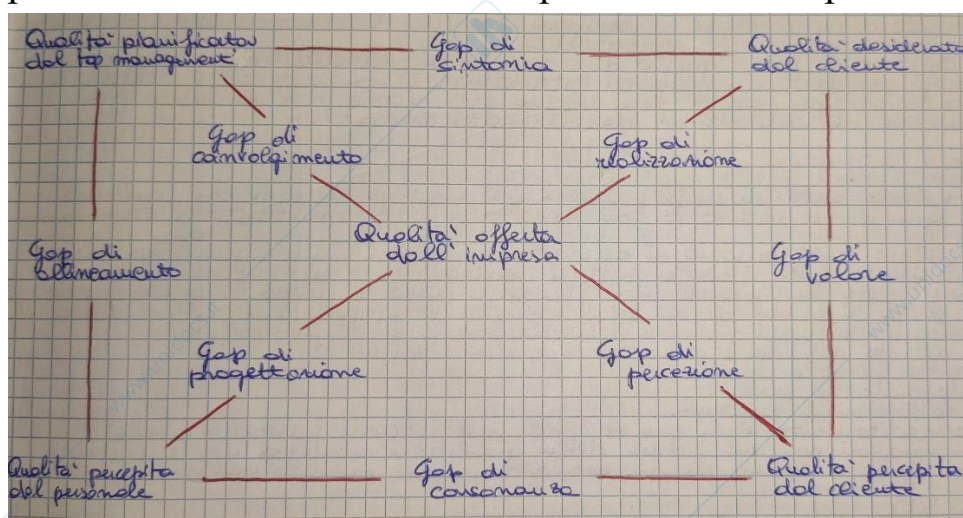 Qualità pianificata
dal top management
Gap di
sintonia
Qualità desiderata
dal cliente
Gap di
coinvolgimento
Gap di
realizzazione
Qualità offerta
dall'impresa
Gap di
allineamento
Gap di
valore
Gap di
progettazione
Gap di
percezione
Qualità percepita
dal personale
Gap di
consonanza
Qualità percepita
dal cliente